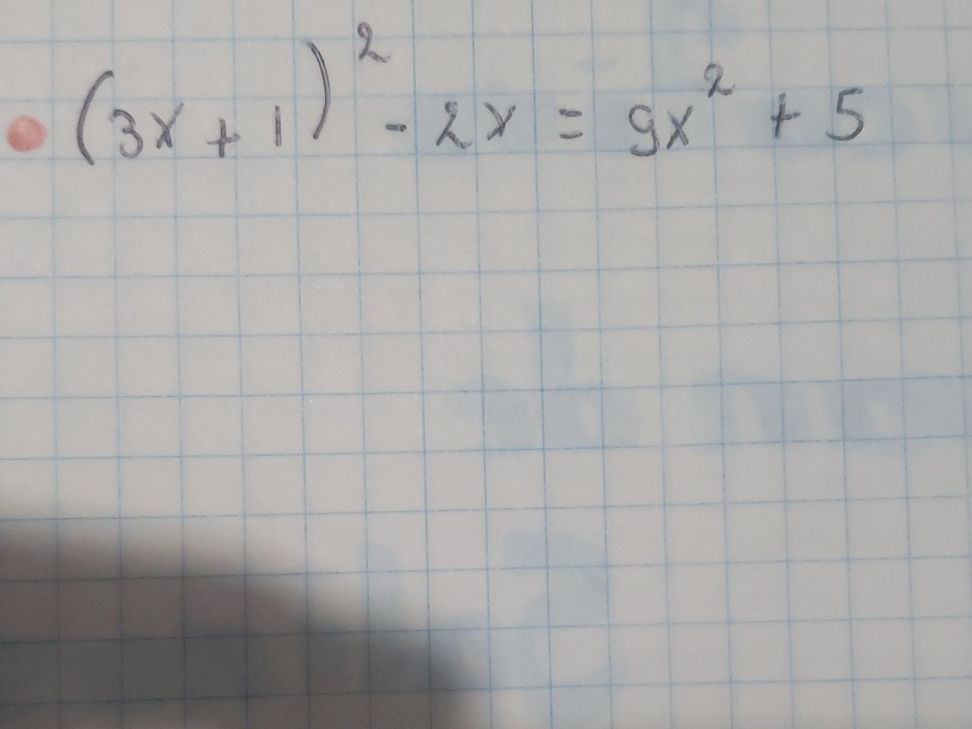 (3x + 1)² - 2x = 9x² + 5